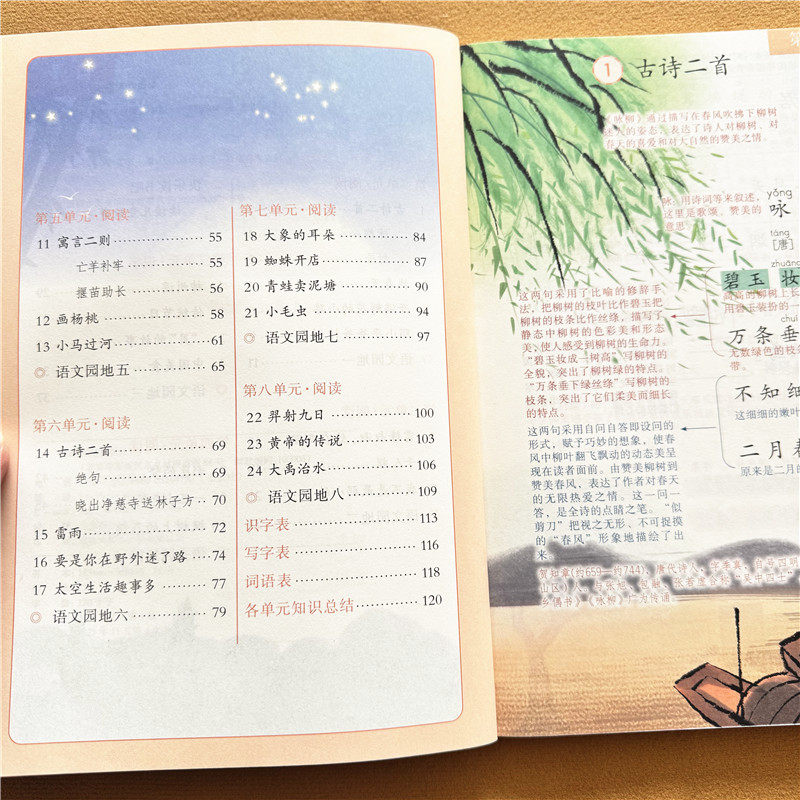 第五单元·阅读
11 寓言二则 55
亡羊补牢 55
揠苗助长 56
12 画杨桃 58
13 小马过河 61
◎ 语文园地五 65
第六单元·阅读
14 古诗二首 69
绝句 69
晓出净慈寺送林子方 70
15 雷雨 72
16 要是你在野外迷了路 74
17 太空生活趣事多 77
◎ 语文园地六 79
第七单元·阅读
18 大象的耳朵 84
19 蜘蛛开店 87
20 青蛙卖泥塘 90
21 小毛虫 94
◎ 语文园地七 97
第八单元·阅读
22 羿射九日 100
23 黄帝的传说 103
24 大禹治水 106
◎ 语文园地八 109
识字表 113
写字表 116
词语表 118
各单元知识总结 120
第
1 古诗二首
《咏柳》通过描写在春风吹拂下柳树
迷人的姿态，表达了诗人对柳树、对
春天的喜爱和对大自然的赞美之情。
yǒng
咏
咏：用诗词等来叙述，
这里是歌颂、赞美的
意思。
táng
[唐]
zhuāng
碧玉妆
高高的柳树上长
用碧玉装扮的一
这两句采用了比喻的修辞手
法，把柳树的枝叶比作碧玉把
柳树的枝条比作丝绦，描写了
静态中柳树的色彩美和形态
美，使人感受到柳树的生命力。
“碧玉妆成一树高”写柳树的
全貌，突出了柳树绿的特点。
“万条垂下绿丝绦”写柳树的
枝条，突出了它们柔美而细长
的特点。
chuí
万条垂
无数绿色的枝条
带。
不知细
这细细的嫩叶
这两句采用自问自答即设问的
形式，赋予巧妙的想象，使春
风中柳叶翻飞飘动的动态美呈
现在读者面前。由赞美柳树到
赞美春风，表达了作者对春天
的无限热爱之情。这一问一
答，是全诗的点睛之笔。“似
剪刀”把视之无形、不可捉摸
的“春风”形象地描绘了出
来。
二月春
原来是二月的
贺知章(约659—约744)，唐代诗人，字季真，自号四明
山区)人，与张旭、包融、张若虚合称“吴中四士”
乡偶书》《咏柳》广为传诵。